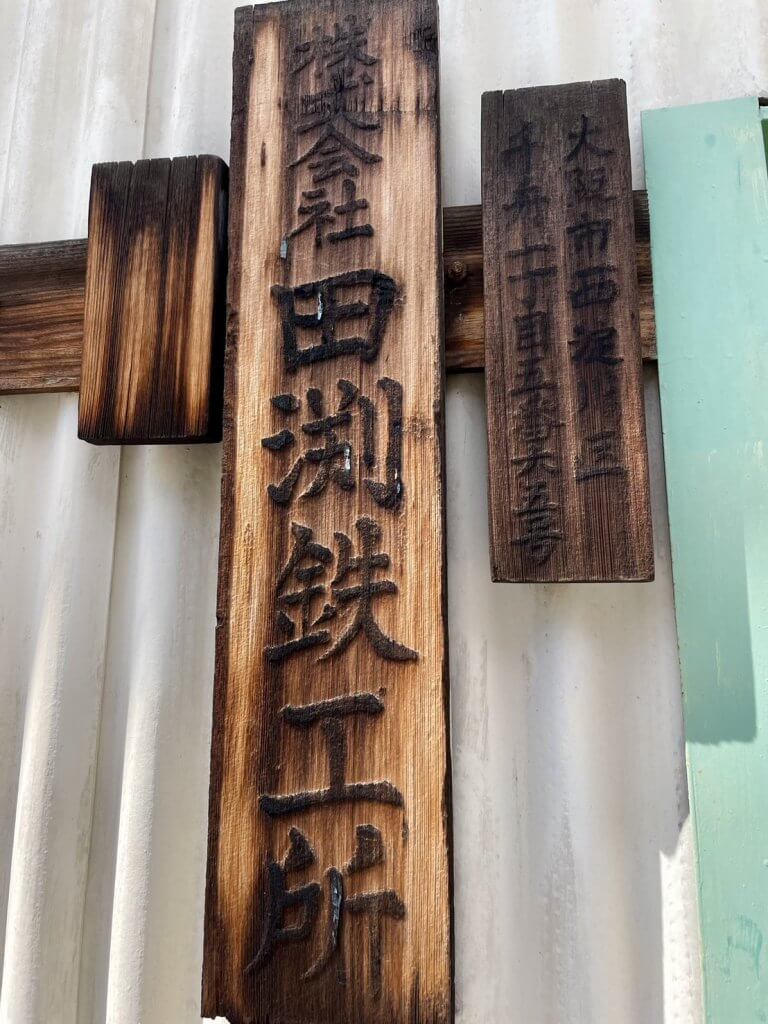 株式会社田渕鉄工所
大阪市西淀川区
千舟一丁目五番六五号